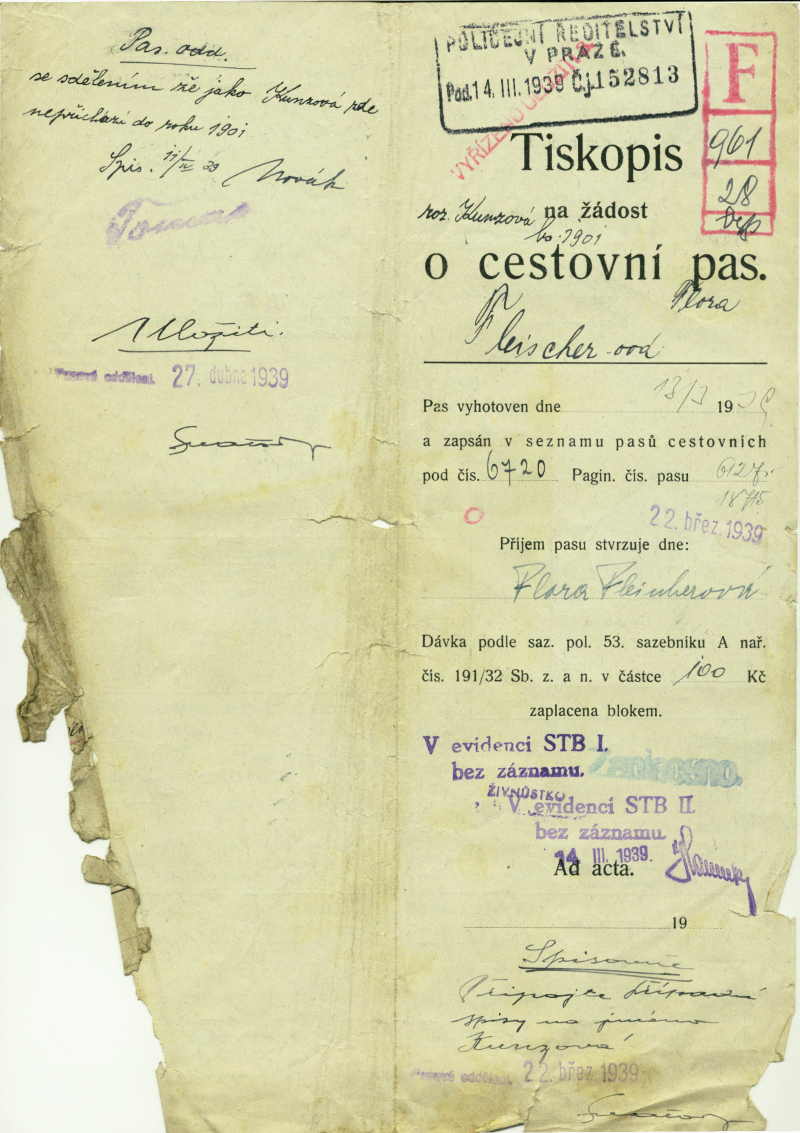 Pas. odd.
se sdělením že jako Kunzová zde
nepřichází do roku 1901
Spis. 11/IV 39 Novák
Uložiti.
Pasové oddělení. 27. dubna 1939
POLICEJNÍ ŘEDITELSTVÍ
V PRAZE.
Pod. 14. III. 1939 Čj. 152813
F
961
28
VYŘÍZENO
Tiskopis
roz. Kunzová na žádost
1901
o cestovní pas.
Flora
Fleischer ovd.
Pas vyhotoven dne 13/3 1939
a zapsán v seznamu pasů cestovních
pod čís. 6720 Pagin. čís. pasu
22. břez. 1939
Příjem pasu stvrzuje dne:
Flora Fleischerová
Dávka podle saz. pol. 53. sazebníku A nař.
čís. 191/32 Sb. z. a n. v částce 100 Kč
zaplacena blokem.
V evidenci STB I.
bez záznamu.
ŽIVNOSTKO
V evidenci STB II.
bez záznamu.
14. III. 1939.
Ad acta.
19
Spisovně
Připojte případné
spisy na jméno
Kunzová
Pasové oddělení. 22. břez 1939